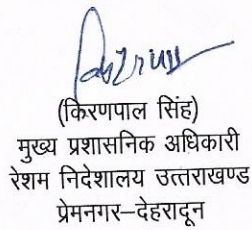 (किरणपाल सिंह)
मुख्य प्रशासनिक अधिकारी
रेशम निदेशालय उत्तराखण्ड
प्रेमनगर–देहरादून